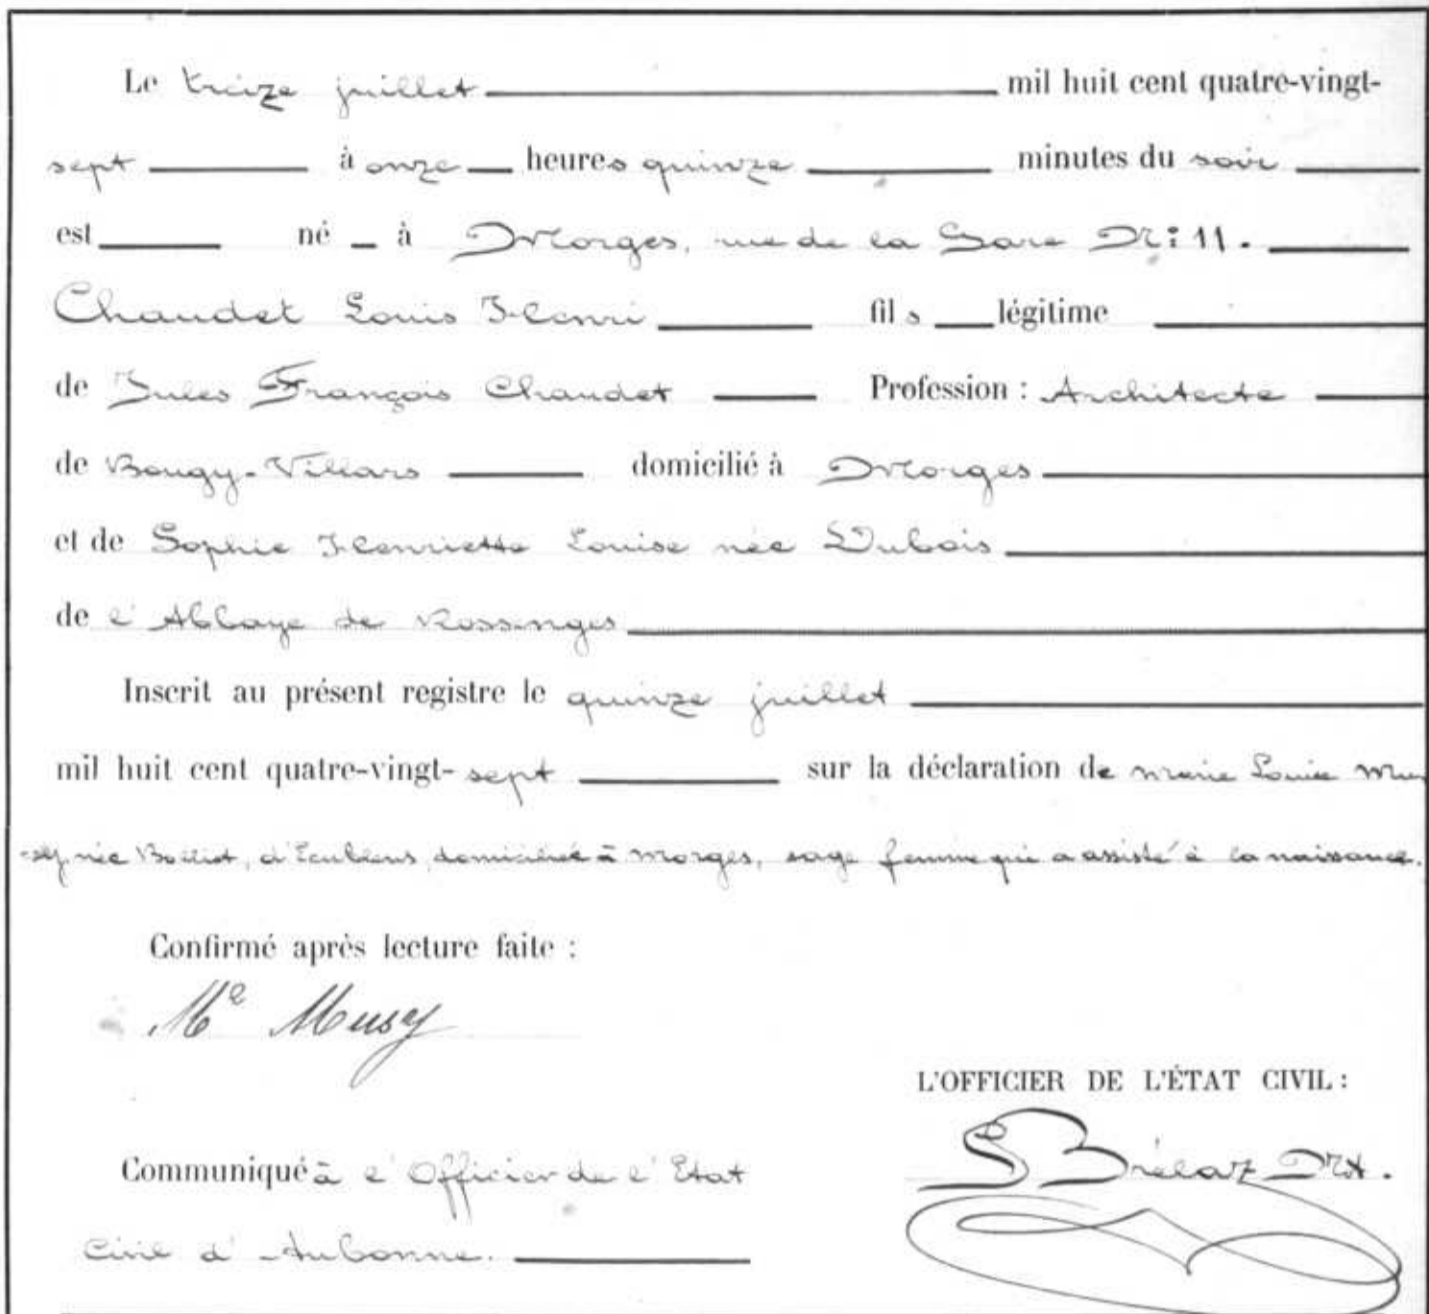 Le treize juillet mil huit cent quatre-vingt-
sept à onze heures quinze minutes du soir
est né à Morges, rue de la Gare No: 11.
Chaudet Louis Henri fils légitime
de Jules François Chaudet Profession : Architecte
de Bougy-Villars domicilié à Morges
et de Sophie Henriette Louise née Dubois
de l'Abbaye de
Inscrit au présent registre le quinze juillet
mil huit cent quatre-vingt-sept sur la déclaration de Marie Louise Mu-
-sy née d'Ecublens, domiciliée à Morges, sage femme qui a assisté à la naissance.
Confirmé après lecture faite :
Me Musy
L'OFFICIER DE L'ÉTAT CIVIL :
Communiqué à l'Officier de l'Etat
S Brélaz Nre.
Civil d'Aubonne.